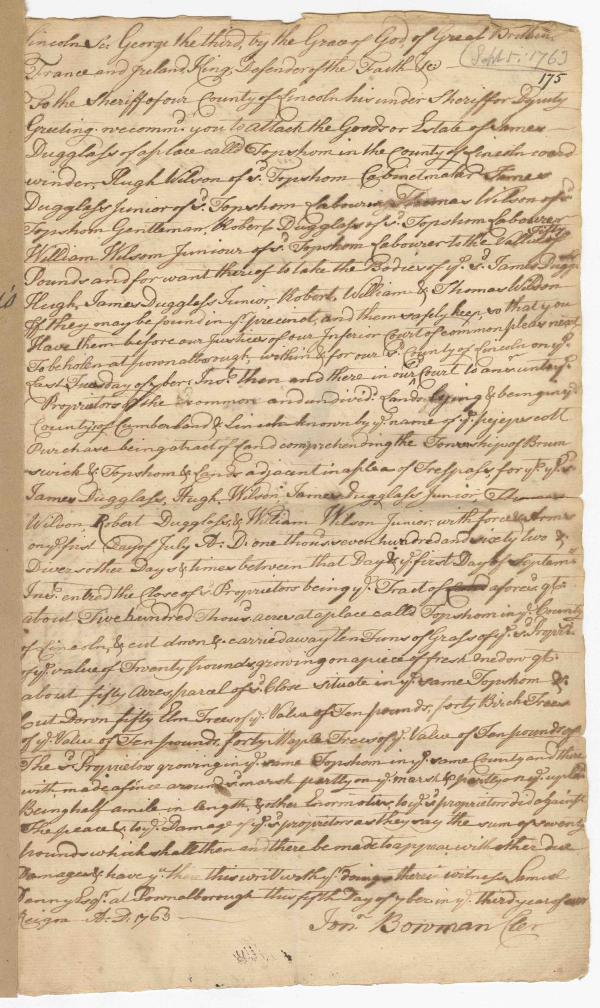 Lincoln Ss. George the third, by the Grace of God, of Great Brittain
(Sept 5. 1763
France and Ireland King, Defender of the Faith &c
175
To the Sheriff of our County of Lincoln his under Sheriff or Deputy
Greeting. we comm.d you to Attach the Goods or Estate of James
Dugglass of a place called Topshom in the County of Lincoln coard
winder, Hugh Wilson of s.d Topshom Cabinetmaker James
Dugglass Junior of s.d Topshom Labourer Thomas Wilson of s.d
Topshom Gentleman, Robert Dugglass of s.d Topshom Labourer
William Wilson Juniour of s.d Topshom Labourer to the Vallue of fifty
Pounds and for want thereof to take the Bodies of y.e s.d James Duggls
Hugh, James Dugglass Junior, Robert, William & Thomas Wilson
If they may be found in y.r precinct, and them safely keep, so that you
Have them before our Justices of our Inferior Court of common pleas next
To be holen at pownalborough, within & for our s.d County of Lincoln on y.e
Last Tuesday of 7ber Ins.t then and there in our s.d Court to ans.r unto y.e
Proprietors of the common and undivid.d Lands, lying & being in y.e
County of Cumberland & Lincoln known by y.e name of y.e pejepscott
Purchase being a tract of Land comprehending the Township of Brun
swick & Topshom & Lands adjacent in a plea of Tresspass, for y.t y.e s.d
James Dugglass, Hugh Wilson, James Dugglass Junior, Thomas
Wilson, Robert Dugglass, & William Wilson Junior, with force & Arms
on y.e first Day of July A: D: one thous.d seven hundred and sixty two &
Divers other Days & times between that Day & y.e first Day of Septem.r
Ins.t entred the Close of s.d Proprietors being y.e Tract of Land aforesd qt.
about Five hundred thous.d acres at a place called Topshom in y.e County
of Lincoln, & cut down & carried away ten Tuns of Grass of y.e s.d Propriet.
of y.e value of Twenty pounds, growing on a piece of fresh medow qt.
about fifty Acres, parcel of s.d Close situate in y.e same Topshom &
Cut Down fifty Elm Trees of y.e Value of Ten pounds, forty Birch Trees
of y.e Value of Ten pounds, forty Maple Trees of y.e Value of Ten pounds of
The s.d Proprietors growing in y.e same Topshom in y.e same County and there
with made a fince around s.d marsh partly on y.e marsh & partly on y.e upland
Being half a mile in length, & other Enormoties, to y.e s.d proprietor did against
The peace & to y.e Damage of y.e s.d proprietors as they say the sum of seventy
pounds which shall then and there be made to appear with other due
Damages & have y.u there this writ with y.r doings therein witness Samuel
Denny Esq.r at Pownalborough this fifth Day of 7ber in y.e third year of our
Reign A: D: 1763
Jon.a Bowman Cler